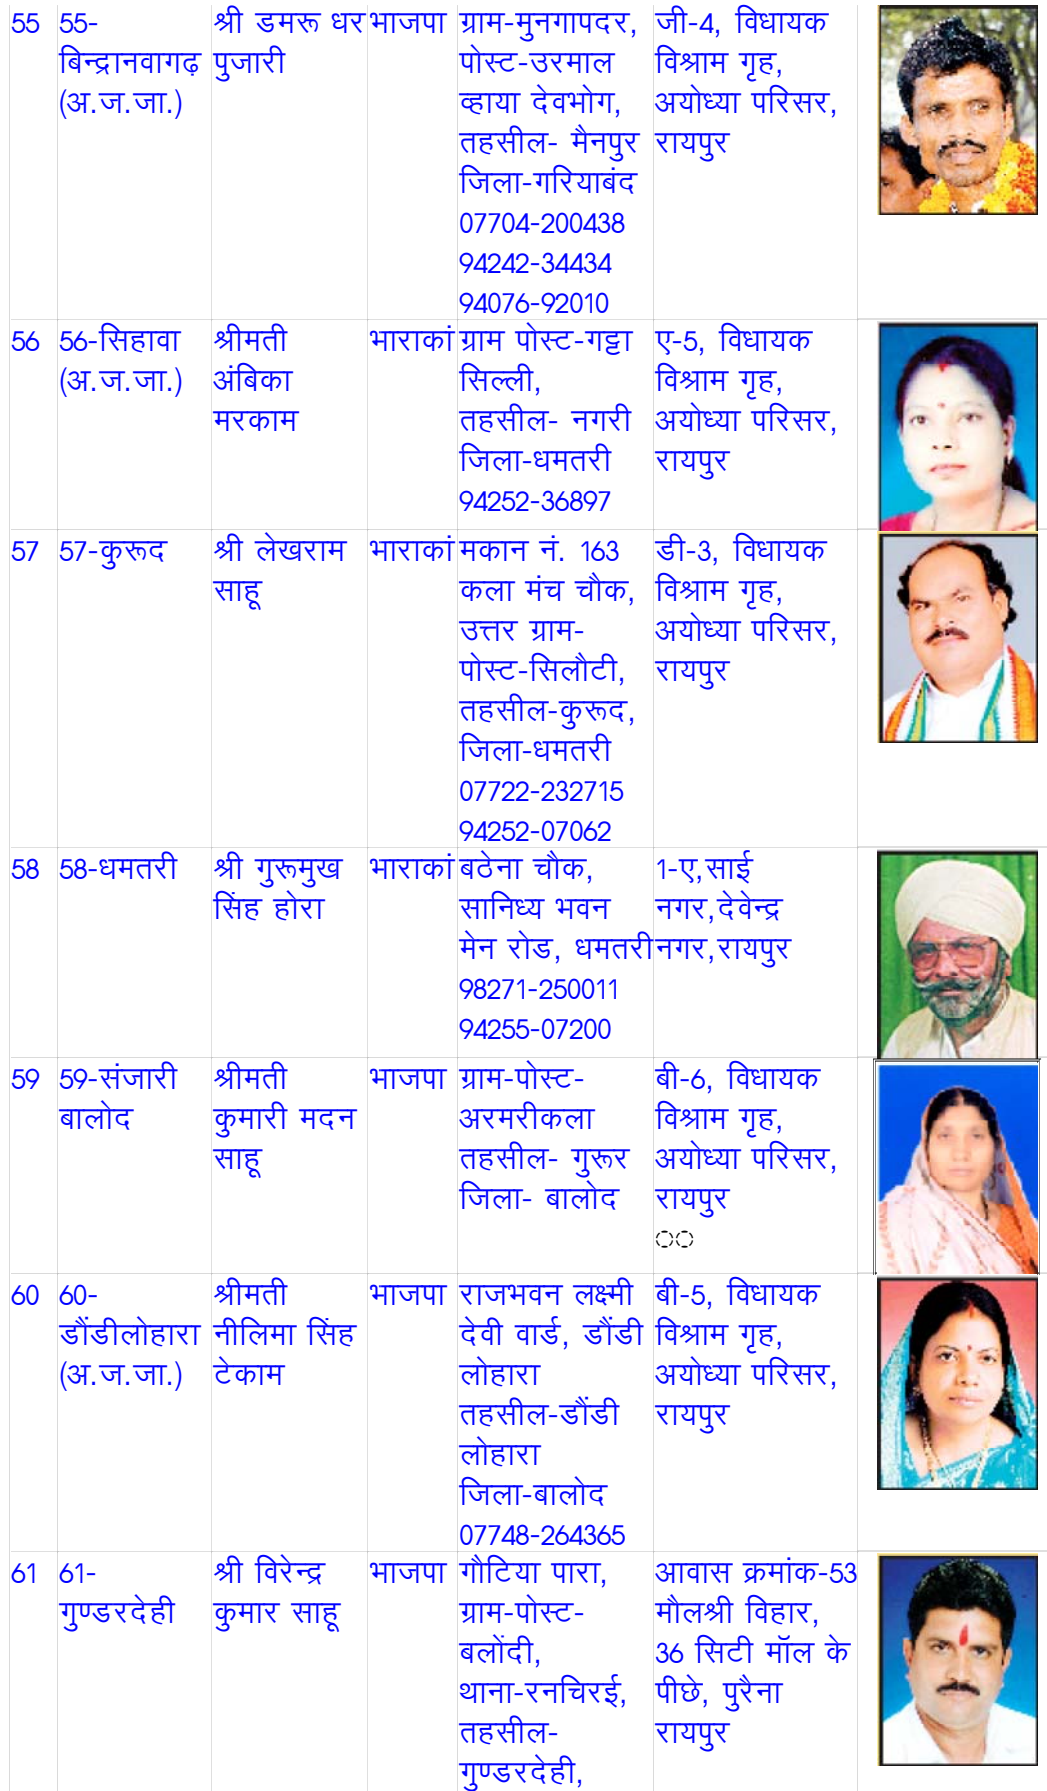 55
55-
बिन्द्रानवागढ़
(अ.ज.जा.)
श्री डमरू धर
पुजारी
भाजपा
ग्राम-मुनगापदर,
पोस्ट-उरमाल
व्हाया देवभोग,
तहसील- मैनपुर
जिला-गरियाबंद
07704-200438
94242-34434
94076-92010
जी-4, विधायक
विश्राम गृह,
अयोध्या परिसर,
रायपुर
56
56-सिहावा
(अ.ज.जा.)
श्रीमती
अंबिका
मरकाम
भाराकां
ग्राम पोस्ट-गट्टा
सिल्ली,
तहसील- नगरी
जिला-धमतरी
94252-36897
ए-5, विधायक
विश्राम गृह,
अयोध्या परिसर,
रायपुर
57
57-कुरूद
श्री लेखराम
साहू
भाराकां
मकान नं. 163
कला मंच चौक,
उत्तर ग्राम-
पोस्ट-सिलौटी,
तहसील-कुरूद,
जिला-धमतरी
07722-232715
94252-07062
डी-3, विधायक
विश्राम गृह,
अयोध्या परिसर,
रायपुर
58
58-धमतरी
श्री गुरूमुख
सिंह होरा
भाराकां
बठेना चौक,
सानिध्य भवन
मेन रोड, धमतरी
98271-250011
94255-07200
1-ए,साई
नगर,देवेन्द्र
नगर,रायपुर
59
59-संजारी
बालोद
श्रीमती
कुमारी मदन
साहू
भाजपा
ग्राम-पोस्ट-
अरमरीकला
तहसील- गुरूर
जिला- बालोद
बी-6, विधायक
विश्राम गृह,
अयोध्या परिसर,
रायपुर
◌◌
60
60-
डौंडीलोहारा
(अ.ज.जा.)
श्रीमती
नीलिमा सिंह
टेकाम
भाजपा
राजभवन लक्ष्मी
देवी वार्ड, डौंडी
लोहारा
तहसील-डौंडी
लोहारा
जिला-बालोद
07748-264365
बी-5, विधायक
विश्राम गृह,
अयोध्या परिसर,
रायपुर
61
61-
गुण्डरदेही
श्री विरेन्द्र
कुमार साहू
भाजपा
गौटिया पारा,
ग्राम-पोस्ट-
बलोंदी,
थाना-रनचिरई,
तहसील-
गुण्डरदेही,
आवास क्रमांक-53
मौलश्री विहार,
36 सिटी मॉल के
पीछे, पुरैना
रायपुर